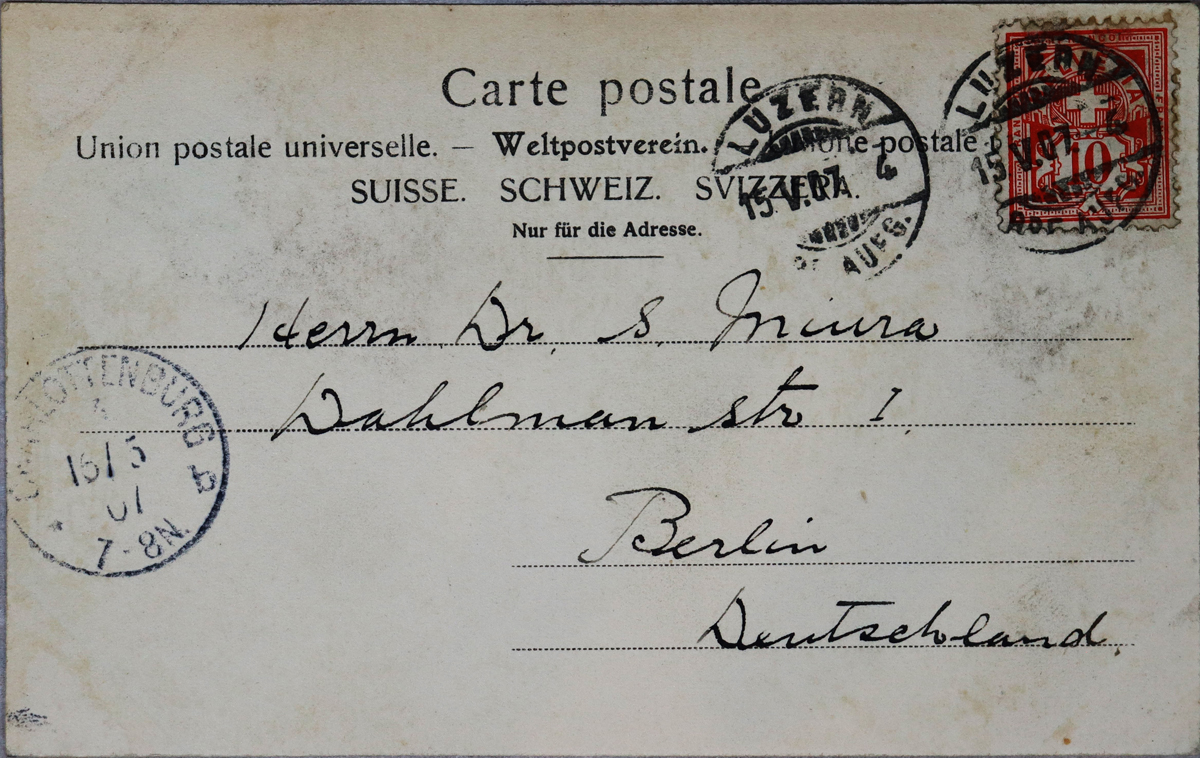 Carte postale
Union postale universelle. — Weltpostverein. postale
SUISSE. SCHWEIZ. SVIZZERA.
Nur für die Adresse.
LUZERN
15.V.07. 4
AUFG.
LUZERN
15.V.07
10
Herrn Dr. S. Miura
Dahlman str I.
Berlin
Deutschland.
CHARLOTTENBURG
16/5
07
7-8N.